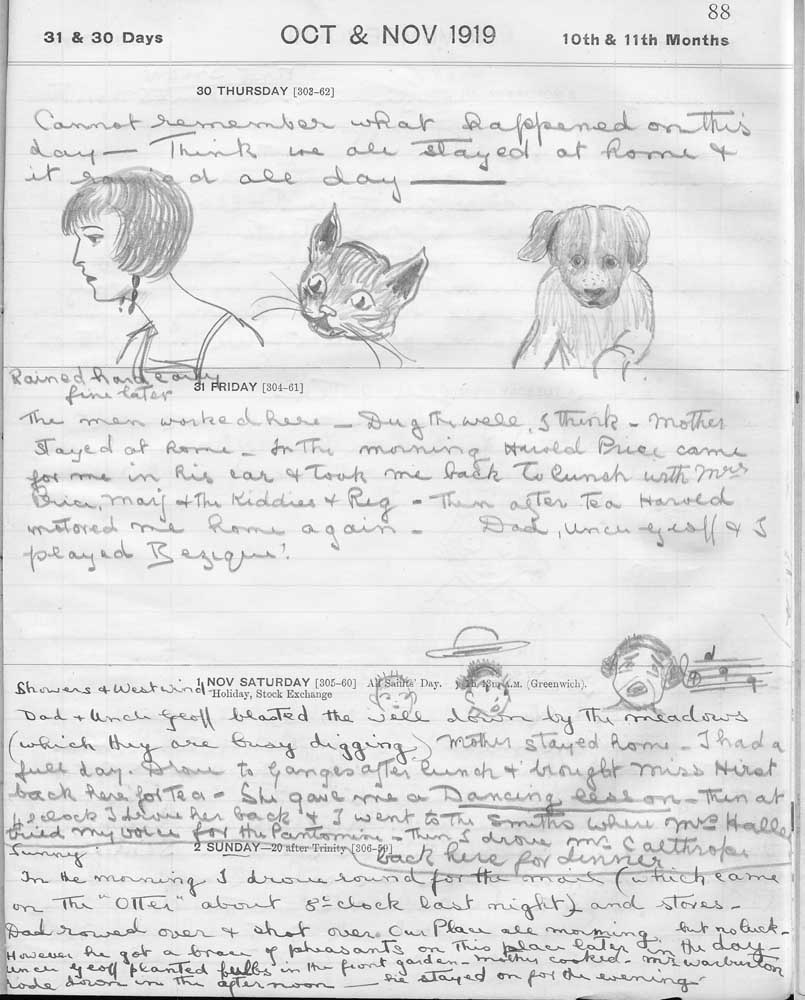 88
31 & 30 Days OCT & NOV 1919 10th & 11th Months
30 THURSDAY [303-62]
Cannot remember what happened on this
day — Think we all stayed at home &
it rained all day —
Rained hard early
fine later
31 FRIDAY [304-61]
The men worked here — Dug the well, I think - Mother
stayed at home - In the morning Harold Price came
for me in his car & took me back to lunch with Mrs
Price, Marj & the Kiddies & Reg - Then after tea Harold
motored me home again - Dad, Uncle Geoff & I
played Bezique!
Showers & West wind
1 NOV SATURDAY [305-60] All Saints' Day. A.M. (Greenwich).
Holiday, Stock Exchange
Dad & Uncle Geoff blasted the well down by the meadows
(which they are busy digging) Mother stayed home - I had a
full day. Drove to Ganges after lunch & brought Miss Hirst
back here for tea - She gave me a Dancing lesson - then at
o'clock I drove her back & I went to the Smiths where Mrs Halle
tried my voice for the Pantomime - Then I drove Mrs Calthrop
back here for dinner
Sunny
2 SUNDAY—20 after Trinity [306-59]
In the morning I drove round for the mail (which came
on the "Otter" about 8 o'clock last night) and stores -
Dad rowed over & shot over Our Place all morning but no luck -
However he got a brace of pheasants on this place later in the day -
Uncle Geoff planted bulbs in the front garden - Mother cooked - Mr Warburton
rode down in the afternoon — he stayed on for the evening